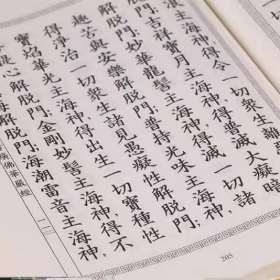 浪主海神,得令一
脫門;吉祥寶月主海神,得普滅大癡
解脫門;妙華龍髻主海神,得滅一切諸
趣苦與安樂解脫門;普持光味主海神,
得淨治一切衆生諸見愚癡性解脫門;
寶焰華光主海神,得出生一切寶種性
提心解脫門;金剛妙髻主海神,得不
海解脫門;海潮雷音主海神,
廣佛華嚴經
205